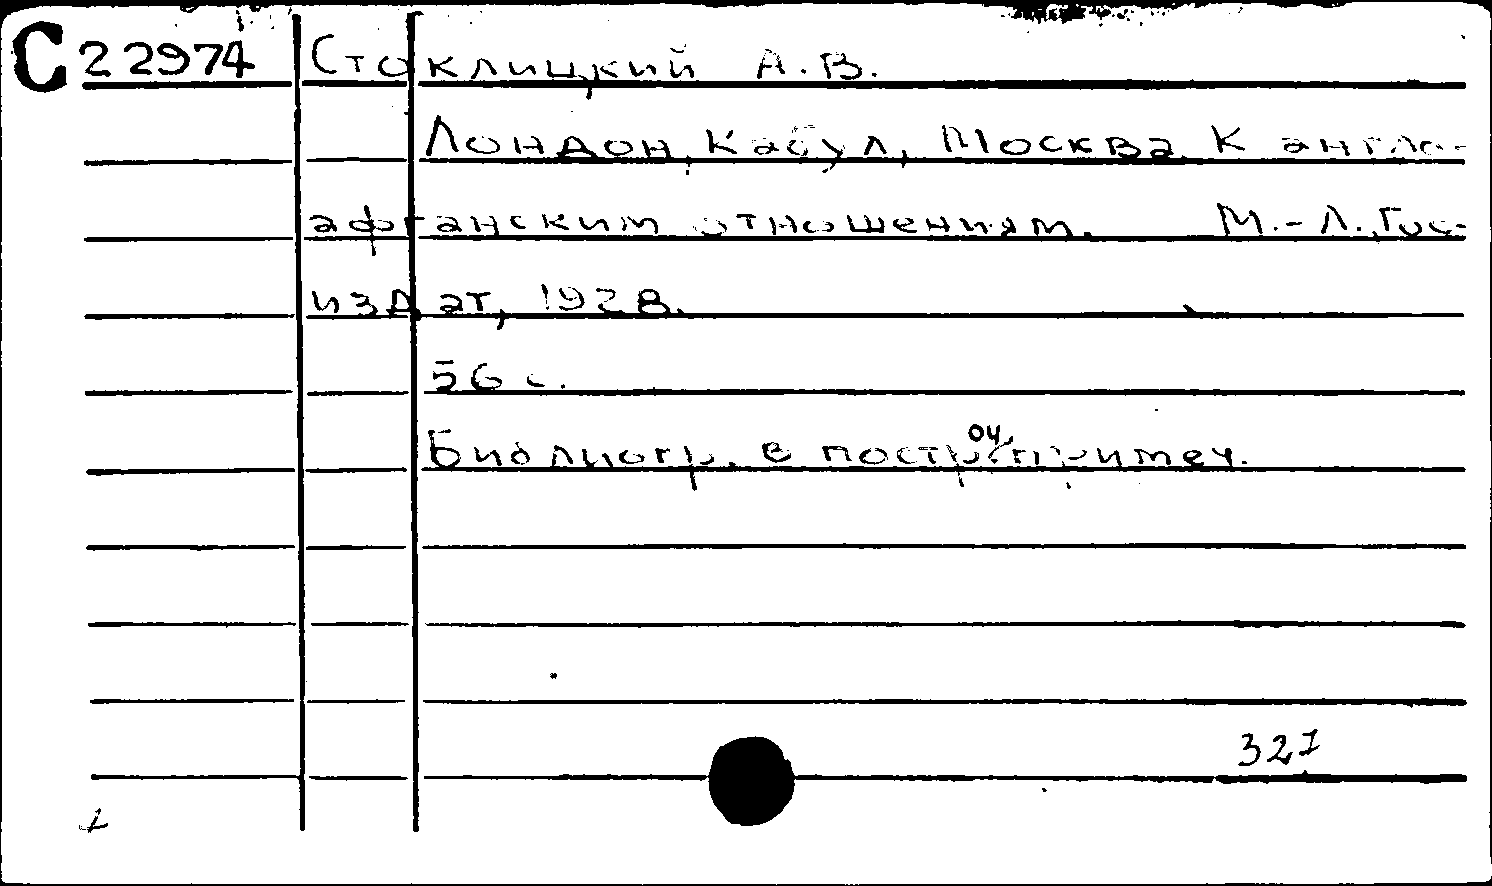 С 22974 Стоклицкий А.В.
Лондон, Кабул, Москва. К англо-
афганским отношениям. М.-Л., Гос-
издат, 1928.
56 с.
Библиогр. в построч. примеч.
321
1